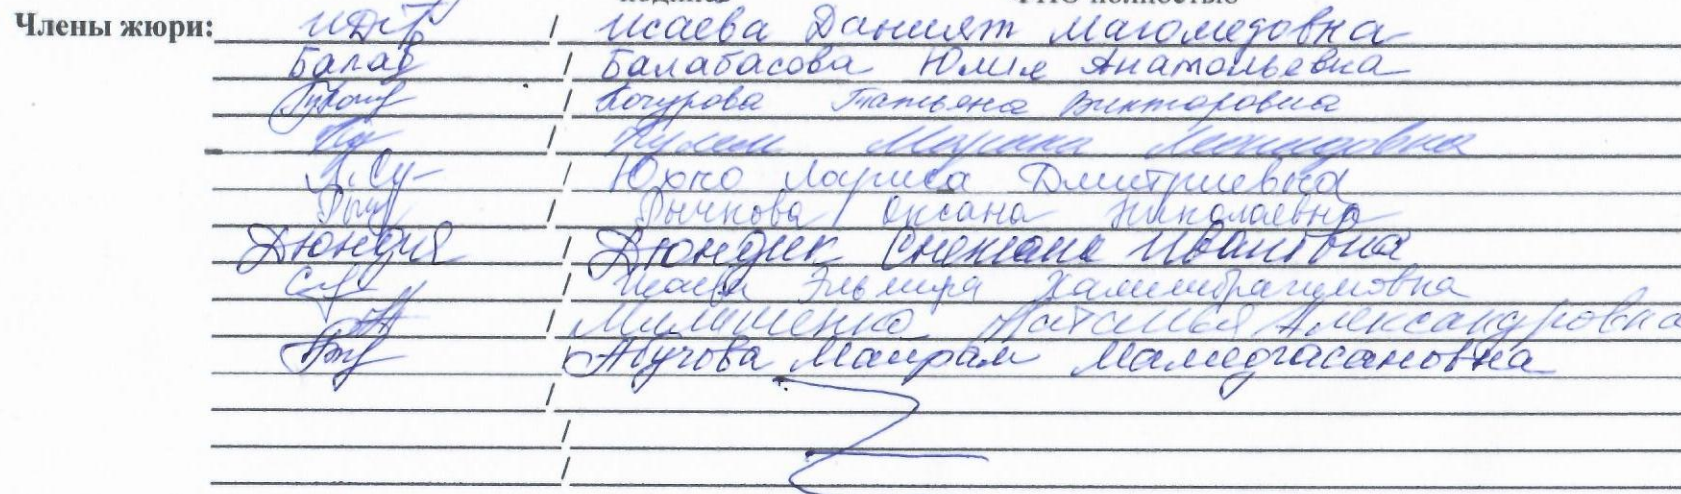 Члены жюри: / Исаева Даният Магомедовна
Балаб / Балабасова Юлия Анатольевна
/ Кочурова Татьяна Викторовна
/ Марина Леонидовна
/ Юхно Лариса Дмитриевна
Рыч / Рычкова Оксана Николаевна
Дюндик / Дюндик Снежана Ивановна
/ Исаева Эльмира Халилибрагимовна
/ Наталья Александровна
/ Абучова Майрам Мамедгасановна
/
/
/